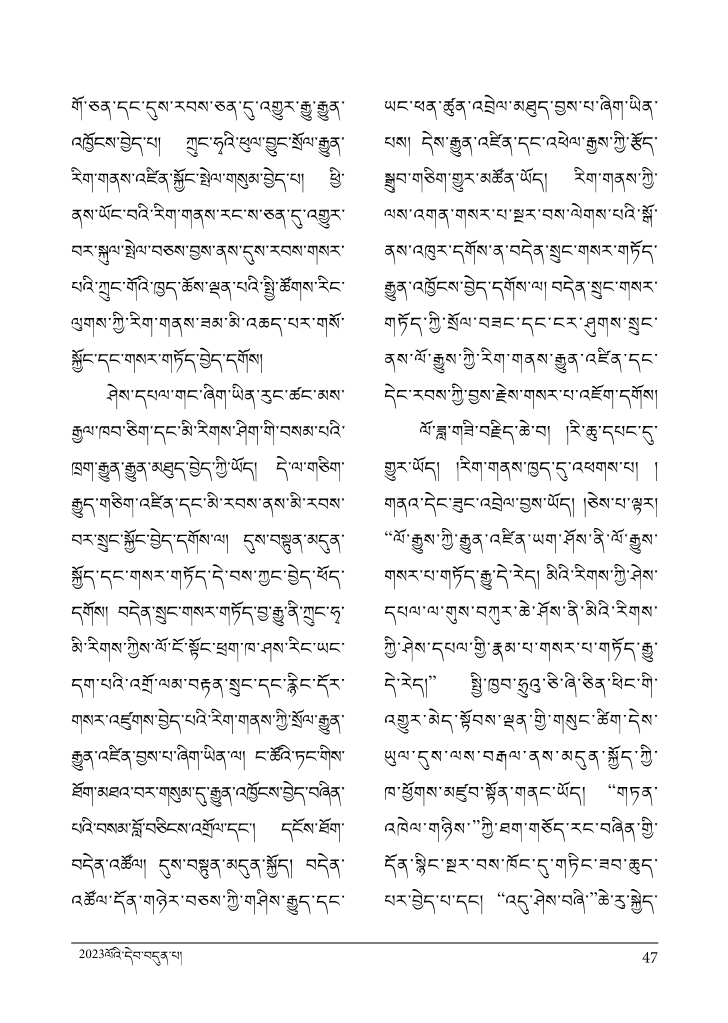 གོ་ཅན་དང་དུས་རབས་ཅན་དུ་འགྱུར་རྒྱུ་རྒྱུན་
འཁྱོངས་བྱེད་པ། ཀྲུང་ཧྭའི་ཕུལ་བྱུང་སྲོལ་རྒྱུན་
རིག་གནས་འཛིན་སྐྱོང་སྤེལ་གསུམ་བྱེད་པ། ཕྱི་
ནས་ཡོང་བའི་རིག་གནས་རང་ས་ཅན་དུ་འགྱུར་
བར་སྐུལ་སྤེལ་བཅས་བྱས་ནས་དུས་རབས་གསར་
པའི་ཀྲུང་གོའི་ཁྱད་ཆོས་ལྡན་པའི་སྤྱི་ཚོགས་རིང་
ལུགས་ཀྱི་རིག་གནས་ཟམ་མི་འཆད་པར་གསོ་
སྐྱོང་དང་གསར་གཏོད་བྱེད་དགོས།
ཤེས་དཔལ་གང་ཞིག་ཡིན་རུང་ཚང་མས་
རྒྱལ་ཁབ་ཅིག་དང་མི་རིགས་ཤིག་གི་བསམ་པའི་
ཁྲག་རྒྱུན་རྒྱུན་མཐུད་བྱེད་ཀྱི་ཡོད། དེ་ལ་གཅིག་
རྒྱུད་གཅིག་འཛིན་དང་མི་རབས་ནས་མི་རབས་
བར་སྲུང་སྐྱོང་བྱེད་དགོས་ལ། དུས་བསྟུན་མདུན་
སྐྱོད་དང་གསར་གཏོད་དེ་བས་ཀྱང་བྱེད་ཕོད་
དགོས། བདེན་སྲུང་གསར་གཏོད་བྱ་རྒྱུ་ནི་ཀྲུང་ཧྭ་
མི་རིགས་ཀྱིས་ལོ་ངོ་སྟོང་ཕྲག་ཁ་ཤས་རིང་ཡང་
དག་པའི་འགྲོ་ལམ་བརྟན་སྲུང་དང་རྙིང་དོར་
གསར་འཛུགས་བྱེད་པའི་རིག་གནས་ཀྱི་སྲོལ་རྒྱུན་
རྒྱུན་འཛིན་བྱས་པ་ཞིག་ཡིན་ལ། ང་ཚོའི་ཏང་གིས་
ཐོག་མཐའ་བར་གསུམ་དུ་རྒྱུན་འཁྱོངས་བྱེད་བཞིན་
པའི་བསམ་བློ་བཅིངས་འགྲོལ་དང་། དངོས་ཐོག་
བདེན་འཚོལ། དུས་བསྟུན་མདུན་སྐྱོད། བདེན་
འཚོལ་དོན་གཉེར་བཅས་ཀྱི་གཤིས་རྒྱུད་དང་
ཡང་ཕན་ཚུན་འབྲེལ་མཐུད་བྱས་པ་ཞིག་ཡིན་
པས། དེས་རྒྱུན་འཛིན་དང་འཕེལ་རྒྱས་ཀྱི་རྩོད་
སྒྲུབ་གཅིག་གྱུར་མཚོན་ཡོད། རིག་གནས་ཀྱི་
ལས་འགན་གསར་པ་སྔར་བས་ལེགས་པའི་སྒོ་
ནས་འཁུར་དགོས་ན་བདེན་སྲུང་གསར་གཏོད་
རྒྱུན་འཁྱོངས་བྱེད་དགོས་ལ། བདེན་སྲུང་གསར་
གཏོད་ཀྱི་སྲོལ་བཟང་དང་ངར་ཤུགས་སྲུང་
ནས་ལོ་རྒྱུས་ཀྱི་རིག་གནས་རྒྱུན་འཛིན་དང་
དེང་རབས་ཀྱི་བྱས་རྗེས་གསར་པ་འཇོག་དགོས།
ལོ་ཟླ་གཟི་བརྗིད་ཆེ་བ། །རི་ཆུ་དཔང་དུ་
གྱུར་ཡོད། །རིག་གནས་ཁྱད་དུ་འཕགས་པ། །
གནའ་དེང་ཟུང་འབྲེལ་བྱས་ཡོད། །ཅེས་པ་ལྟར།
“ལོ་རྒྱུས་ཀྱི་རྒྱུན་འཛིན་ཡག་ཤོས་ནི་ལོ་རྒྱུས་
གསར་པ་གཏོད་རྒྱུ་དེ་རེད། མིའི་རིགས་ཀྱི་ཤེས་
དཔལ་ལ་གུས་བཀུར་ཆེ་ཤོས་ནི་མིའི་རིགས་
ཀྱི་ཤེས་དཔལ་གྱི་རྣམ་པ་གསར་པ་གཏོད་རྒྱུ་
དེ་རེད།” སྤྱི་ཁྱབ་ཧྲུའུ་ཅི་ཞི་ཅིན་ཕིང་གི་
འགྱུར་མེད་སྟོབས་ལྡན་གྱི་གསུང་ཚིག་དེས་
ཡུལ་དུས་ལས་བརྒལ་ནས་མདུན་སྐྱོད་ཀྱི་
ཁ་ཕྱོགས་མཛུབ་སྟོན་གནང་ཡོད། “གཏན་
འཁེལ་གཉིས་”ཀྱི་ཐག་གཅོད་རང་བཞིན་གྱི་
དོན་སྙིང་སྔར་བས་ཁོང་དུ་གཏིང་ཟབ་ཆུད་
པར་བྱེད་པ་དང། “འདུ་ཤེས་བཞི་”ཆེ་རུ་སྐྱེད་
2023ལོའི་དེབ་བདུན་པ།
47